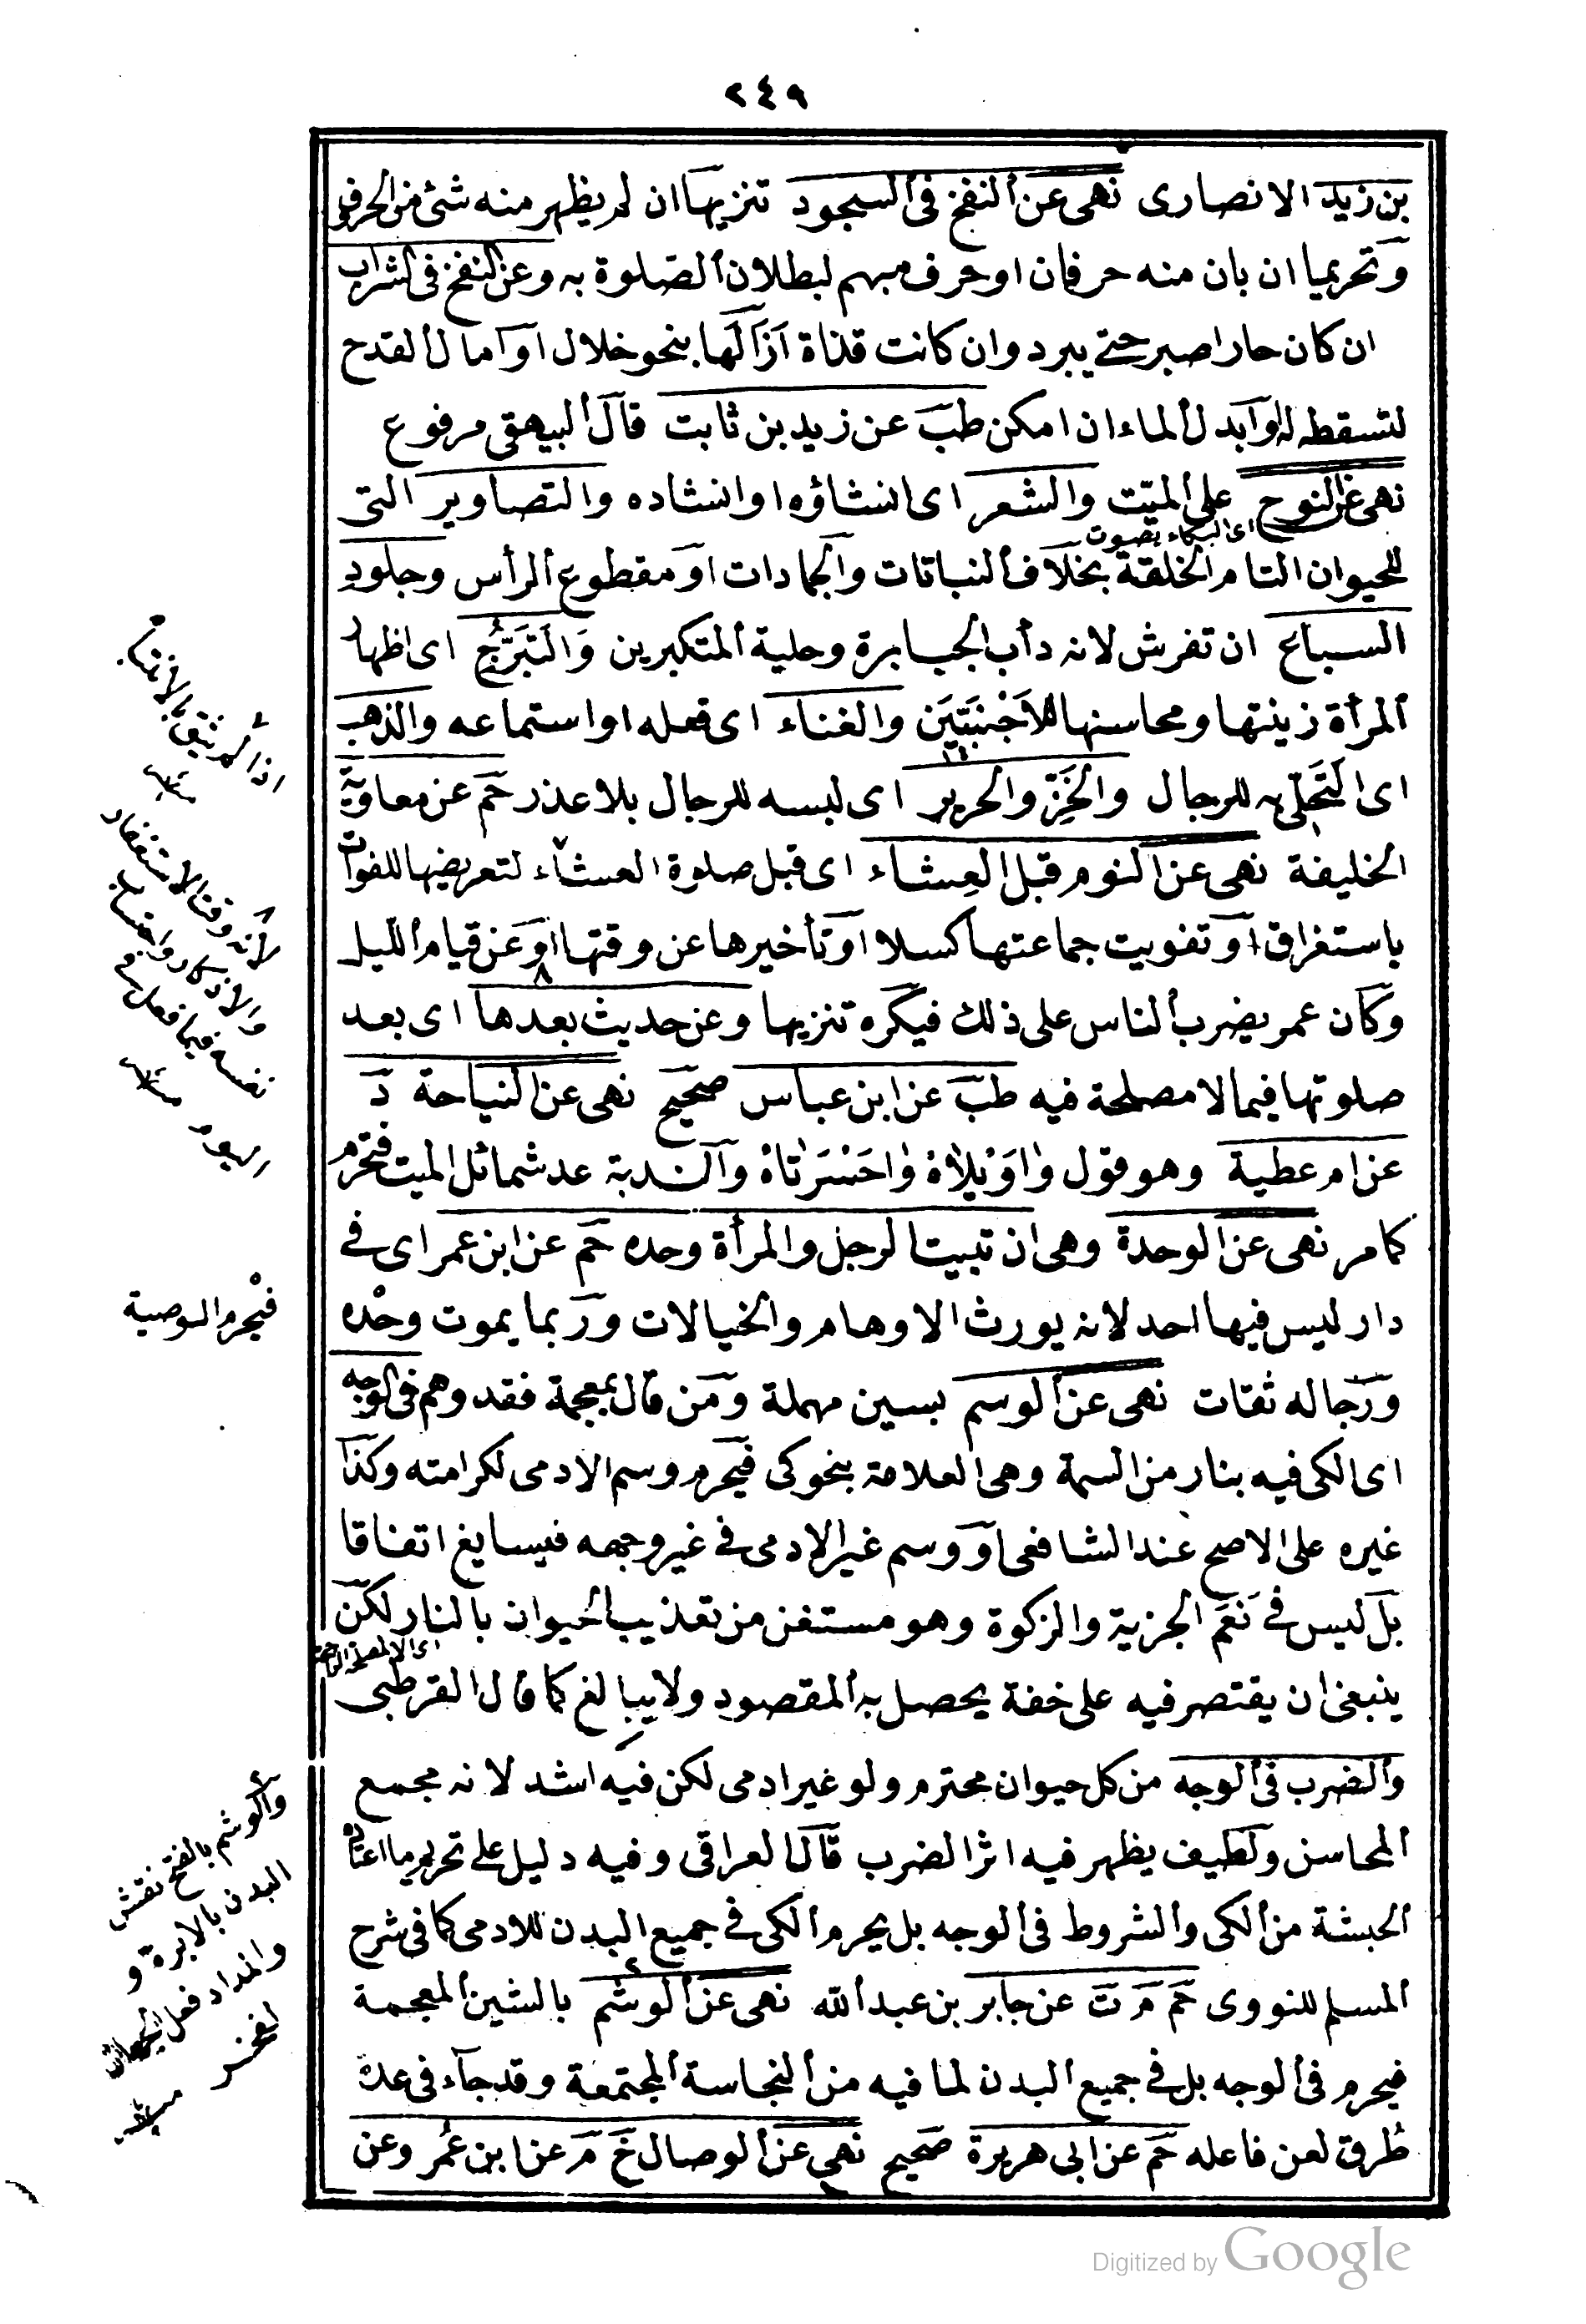 ٢٤٩
بن زيد الانصارى نهى عن النفخ فى السجود تنزيها ان لم يظهر منه شئ من الحرف
وتحريما ان بان منه حرفان او حرف مبهم لبطلان الصلوة به وعن النفخ فى الشراب
ان كان حارا صبر حتى يبرد وان كانت قذاة ازالها بنحو خلال او امال القدح
لتسقط او ابدل الماء ان امكن طب عن زيد بن ثابت قال البيهقى مرفوع
نهى عن النوح على الميت والشعر اى انشاؤه او انشاده والتصاوير التى
اى البكاء بصوت
للحيوان التام الخلقة بخلاف النباتات والجمادات او مقطوع الرأس وجلود
السباع ان تفرش لانه دأب الجبابرة وحلية المتكبرين وَالتَبَرُّجِ اى اظهار
المرأة زينتها ومحاسنها للاَجْنَبَيَّن والغناء اى فعله او استماعه والذهب
اى التَحَلّى به للرجال والخَزِّ والحرير اى لبسه للرجال بلا عذر حم عن معاوية
الخليفة نهى عن النوم قبل العِشاء اى قبل صلوة العشاء لتعريضها للفوات
باستغراق او تفويت جماعتها كسلا او تأخيرها عن وقتها او عن قيام الليل
وكان عمر يضرب الناس على ذلك فيكره تنزيها وعن حديث بعدها اى بعد
صلوتها فيما لا مصلحة فيه طب عن ابن عباس صحيح نهى عن النياحة د
عن ام عطية وهو قول وا وَيْلاهْ وا حَسْرَتاهْ والندبة عد شمائل الميت فتحرم
كما مر نهى عن الوحدة وهى ان تبيت الرجل والمرأة وحده حم عن ابن عمر اى فى
دار ليس فيها احد لانه يورث الاوهام والخيالات وربما يموت وحْده
ورجاله ثقات نهى عن الوسم بسين مهملة ومن قال بمعجمة فقد وهم فى الوجه
اى الكى فيه بنار من السمة وهى العلامة بنحو كى فيحرم وسم الادمى لكرامته وكذا
غيره على الاصح عند الشافعى او وسم غير الادمى فى غير وجهه فيسايغ اتفاقا
بل ليس فى نَعَم الجزية والزكوة وهو مستغن من تعذيب الحيوان بالنار لكن
ينبغى ان يقتصر فيه على خفة يحصل به المقصود ولا يبالغ كما قال القرطبى
والضرب فى الوجه من كل حيوان محترم ولو غير ادمى لكن فيه اشد لانه مجمع
المحاسن ولطيف يظهر فيه اثر الضرب قال العراقى وفيه دليل على تحريم ما اعتاده
الحبشة من الكى والشروط فى الوجه بل يحرم الكى فى جميع البدن للادمى كما فى شرح
المسلم للنووى حم م ت عن جابر بن عبد الله نهى عن الوشم بالشين المعجمة
فيحرم فى الوجه بل فى جميع البدن لما فيه من النجاسة المجتمعة وقد جاء فى عدة
طُرق لعن فاعله حم عن ابى هريرة صحيح نهى عن الوصال خ م عن ابن عُمر وعن
اذا لم يثق بالانتباه
لانه وقت الاستغفار
والاذكار واحتساب
نفسه فيما فعل فى
اليوم
فيْحرم الوصية
والوشم بالفتح نقش
البدن بالابرة و
والمداد فعل
Digitized by Google